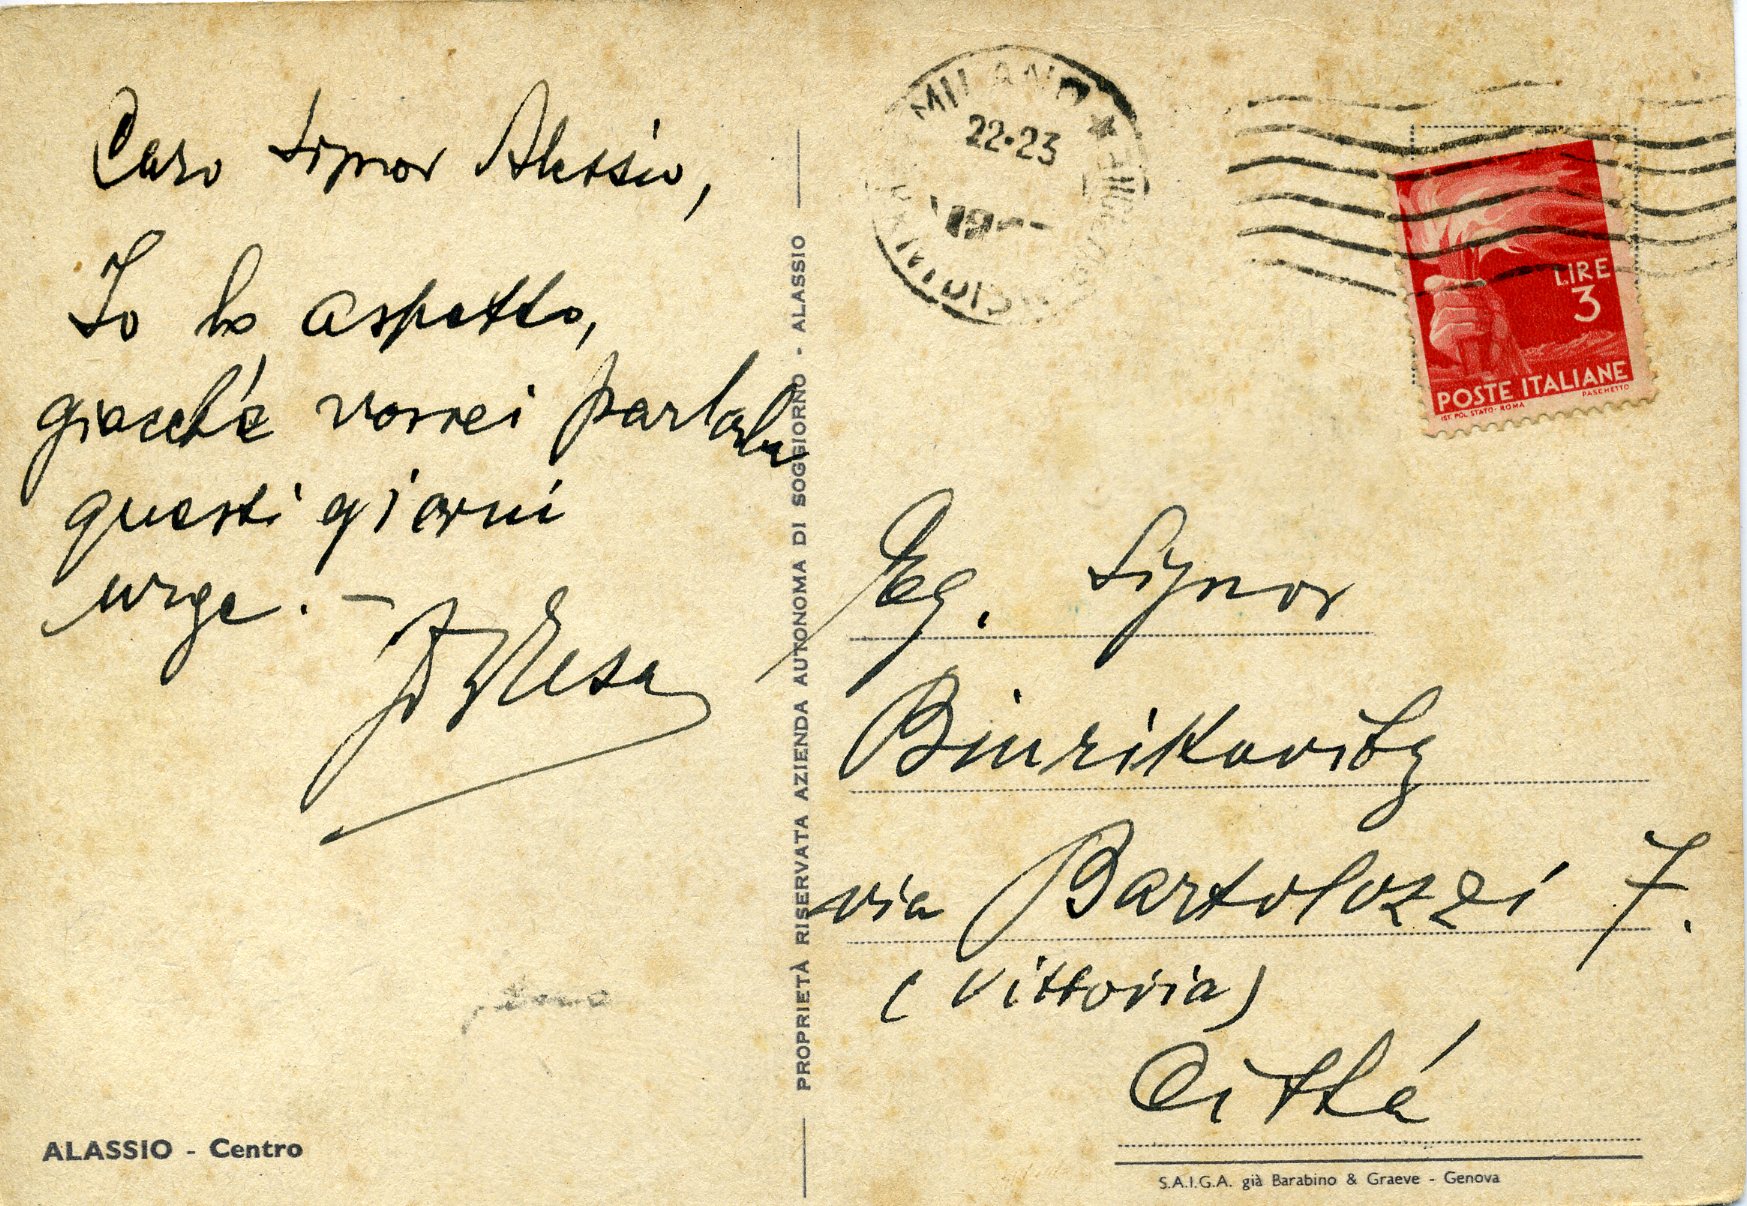 Caro Signor Alessio,
Io lo aspetto,
giacchè vorrei parlarle
questi giorni
urge. –
MILANO
22·23
19
LIRE
3
POSTE ITALIANE
IST. POL. STATO · ROMA PASCHETTO
Eg. Signor
via Bartolozzi 7.
(Vittoria)
Città
PROPRIETÀ RISERVATA AZIENDA AUTONOMA DI SOGGIORNO - ALASSIO
ALASSIO - Centro
S.A.I.G.A. già Barabino & Graeve - Genova